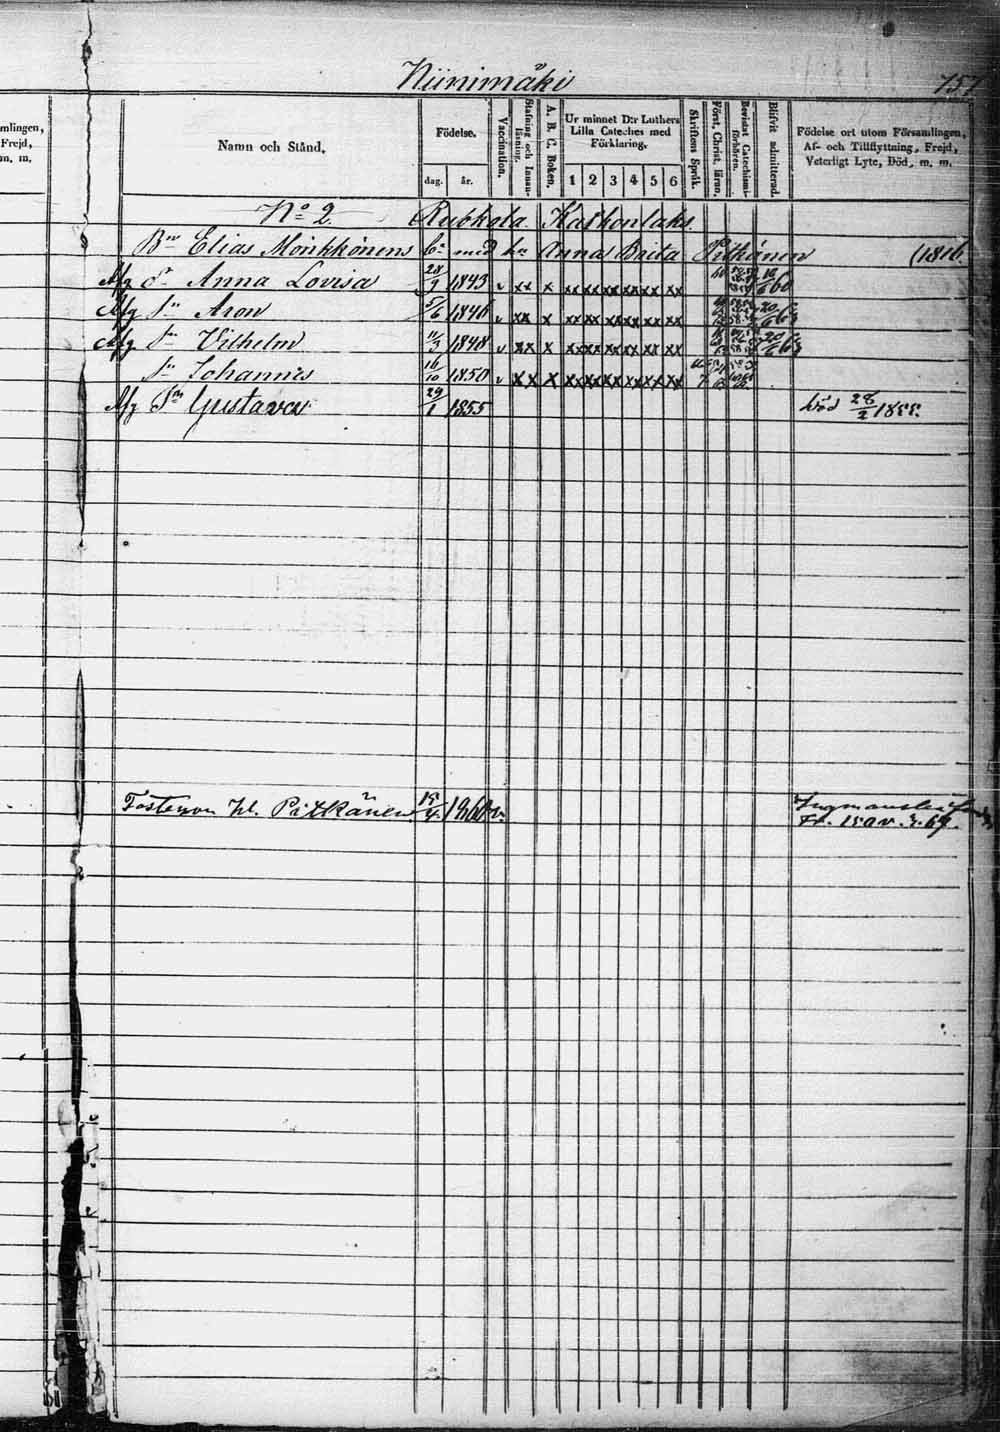 Niinimäki
757
mlingen,
Frejd,
m. m.
Namn och Stånd.
Födelse.
dag. år.
Vaccination.
Stafning och Innan-läsning.
A. B. C. Boken.
Ur minnet D:r Luthers
Lilla Cateches med
Förklaring.
1 2 3 4 5 6
Skriftens Språk.
Först. Christ. läran.
Bevistat Catechismi-förhören.
Blifvit admitterad.
Födelse ort utom Församlingen,
Af- och Tillflyttning, Frejd,
Veterligt Lyte, Död, m. m.
No 2 Kathonlaks.
Bn Elias Mönkkönens med Anna Brita Pitkänen (1816.
Afg dr Anna Lovisa 28/9 1843 v xx x xx xx xx xx xx xx
Afg Sn Aron 5/6 1846 v xx x xx xx xx xx xx xx
Afg Sn Vilhelm 11/3 1848 v xx x xx xx xx xx xx xx
Sn Johannes 16/10 1850 v xx x xx xx xx xx xx xx
Afg Sn Gustava 29/1 1855 död 28/2 1855.
Fosterson Pitkänen 15/4 1860 v.